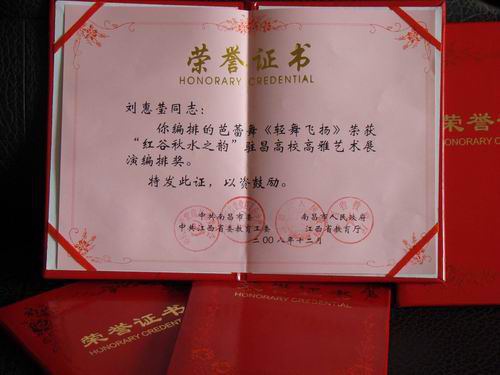 荣誉证书
HONORARY CREDENTIAL
刘惠莹同志：
你编排的芭蕾舞《轻舞飞扬》荣获
“红谷秋水之韵”驻昌高校高雅艺术展
演编排奖。
特发此证，以资鼓励。
中共南昌市委 南昌市人民政府
中共江西省委教育工委 江西省教育厅
二00八年十二月
荣誉证书
HONORARY
荣誉证书
HONORARY CREDENTIAL
HONORARY CREDENTIAL